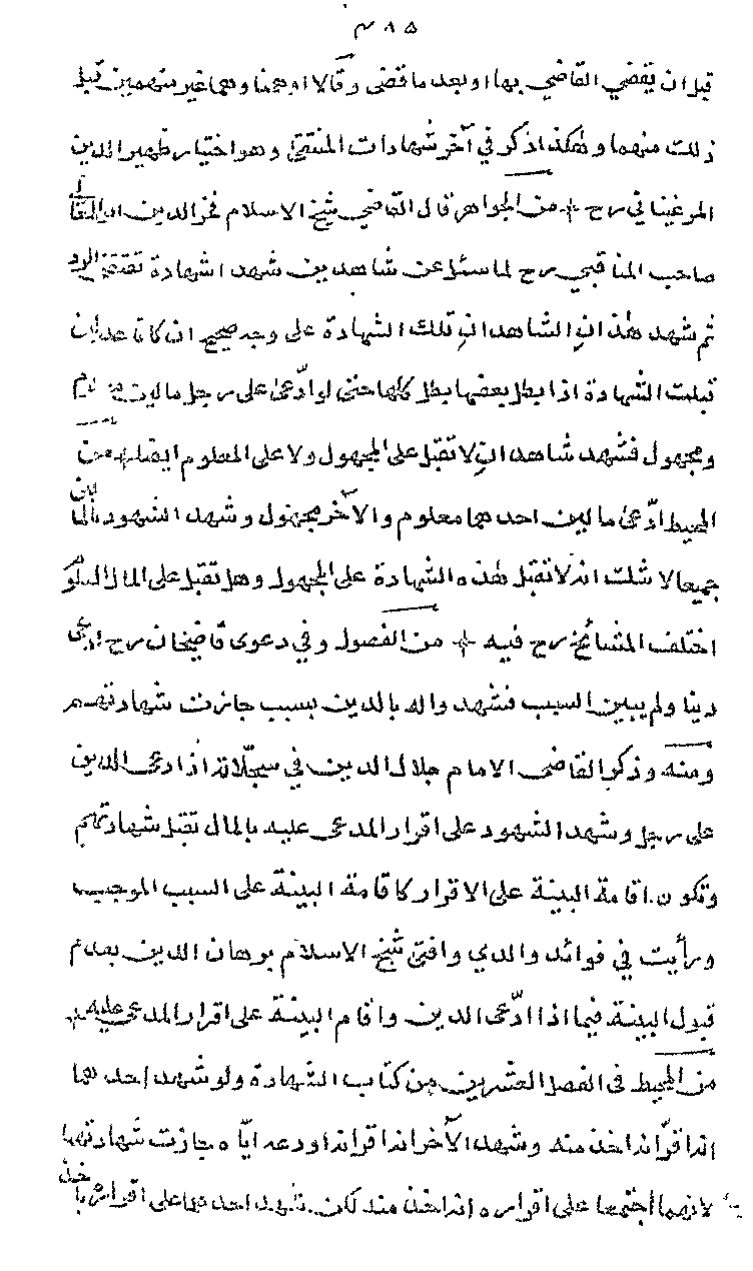 ٣٨٥
قبل ان يقضي القاضي بها او بعد ما قضى وقالا اوهمنا وهما غير متهمين قبل
ذلك منهما وهكذا ذكر في آخر شهادات المنتقى وهو اختيار ظهير الدين
المرغيناني رح من الجواهر قال القاضي شيخ الاسلام فخر الدين
صاحب المناقبي رح لما سئل عن شاهدين شهدا شهادة تقتضي الرد
ثم شهد هذان الشاهدان تلك الشهادة على وجه صحيح ان كانا عدلين
قبلت الشهادة اذا بطل بعضها بطل كلها حتى لو ادّعى على رجل مالين
ومجهول فشهد شاهدان لا تقبل على المجهول ولا على المعلوم ايضا من
المحيط ادّعى مالين احدهما معلوم والآخر مجهول وشهد الشهود بالمالين
جميعا لا شك انه لا تقبل هذه الشهادة على المجهول وهل تقبل على المال المعلوم
اختلف المشائخ رح فيه من الفصول وفي دعوى قاضيخان رح ادعى
دينا ولم يبين السبب فشهدوا له بالدين بسبب جازت شهادتهم
ومنه وذكر القاضى الامام جلال الدين في سجلّاته اذا ادعى الدين
على رجل وشهد الشهود على اقرار المدعى عليه بالمال تقبل شهادتهم
وتكون اقامة البينة على الاقرار كاقامة البينة على السبب الموجب
ورأيت في فوائد والدي وافتى شيخ الاسلام برهان الدين بعدم
قبول البينة فيما اذا ادّعى الدين واقام البينة على اقرار المدعى عليه
من المحيط فى الفصل العشرين من كتاب الشهادة ولو شهد احدهما
انه اقرّ انه اخذ منه وشهد الآخر انه اقر انه اودعه ايّاه جازت شهادتهما
لانهما اجتمعا على اقراره انه اخذ منه لكن شهد احدهما على اقراره باخذ